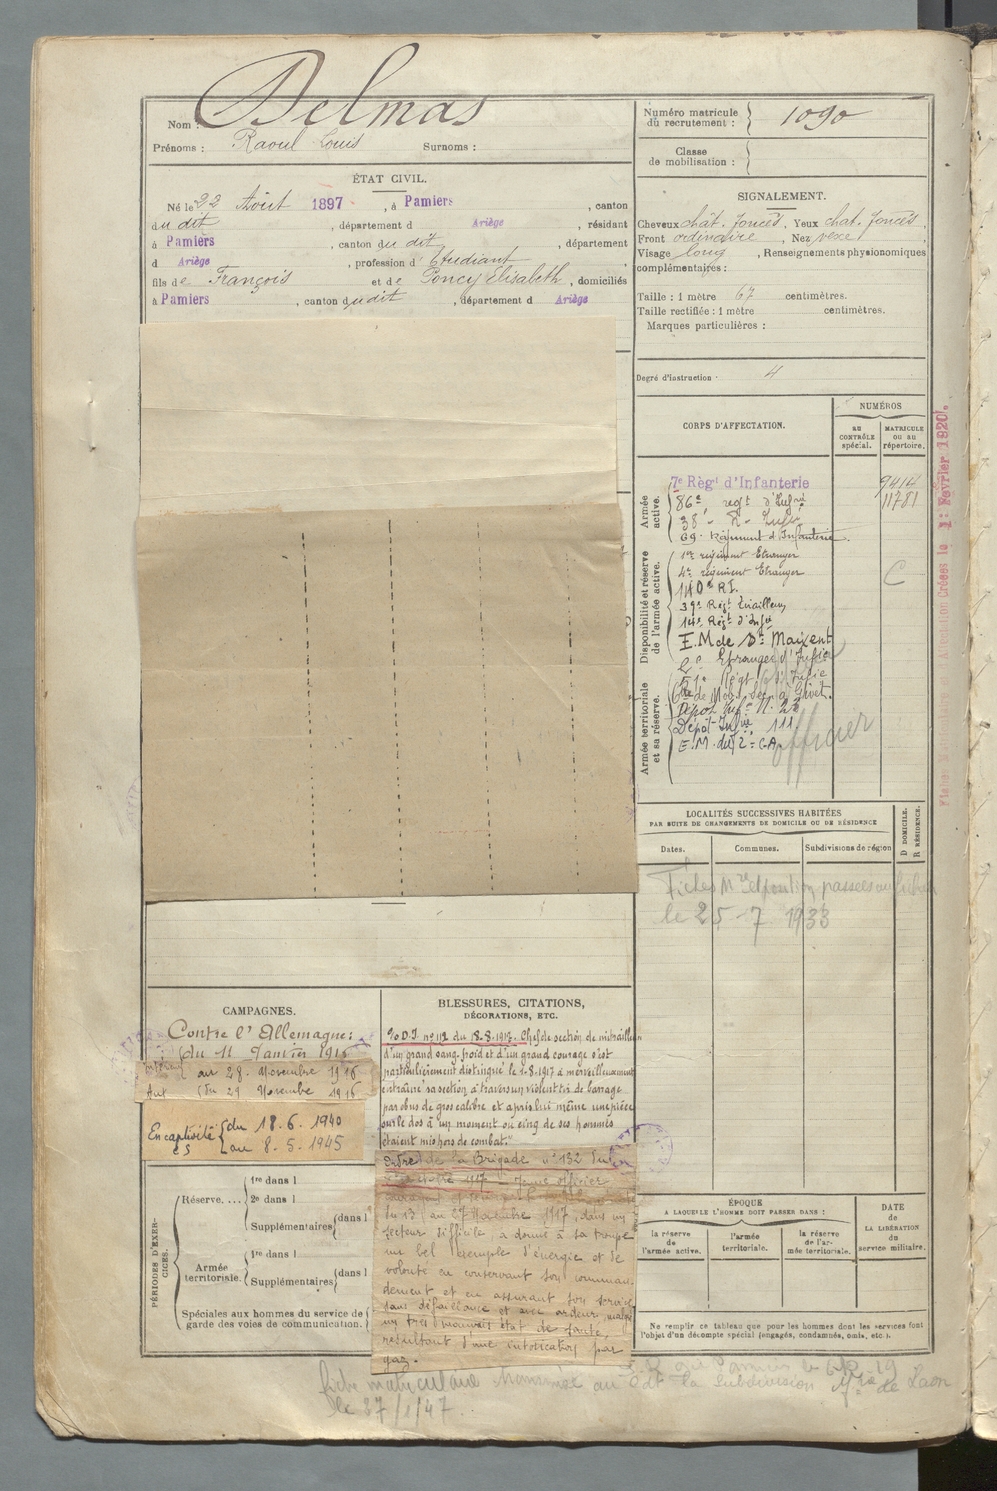 Nom : Delmas
Prénoms : Raoul Louis Surnoms :
ÉTAT CIVIL.
Né le 22 Août 1897, à Pamiers, canton
du dit, département d Ariège, résidant
à Pamiers, canton du dit, département
d Ariège, profession d'Etudiant
fils de François et de Poncy Elisabeth, domiciliés
à Pamiers, canton dudit, département d Ariège
Numéro matricule du recrutement : 1090
Classe de mobilisation :
SIGNALEMENT.
Cheveux chât. foncés, Yeux chat. foncés
Front ordinaire, Nez vexe
Visage long, Renseignements physionomiques
complémentaires :
Taille : 1 mètre 67 centimètres.
Taille rectifiée : 1 mètre centimètres.
Marques particulières :
Degré d'instruction : 4
CORPS D'AFFECTATION.
NUMÉROS
AU CONTRÔLE spécial.
MATRICULE OU AU répertoire.
Armée active.
7e Régt d'Infanterie 9414
86e regt d'Infrie 11781
38e R. Infie
69e Régiment d'Infanterie.
Disponibilité et réserve de l'armée active.
1er régiment Etranger
4e régiment Etranger C
140e R.I.
39e Régt Tirailleurs
14e Régt d'Infie
E.M de St Maixent
Armée territoriale et sa réserve.
Etranger d'Infie
51e Régt d'Infie
Dépôt Infie N. 23
Dépôt Infie 111
E.M. du 2e C.A.
officier
Fiches Matricule et Affectation Créées le 1er Février 1920.
LOCALITÉS SUCCESSIVES HABITÉES
PAR SUITE DE CHANGEMENTS DE DOMICILE OU DE RÉSIDENCE
D DOMICILE.
R RÉSIDENCE.
Dates. Communes. Subdivisions de région
le 25-7 1933
CAMPAGNES.
Contre l'Allemagne :
du 11 Janvier 1916
au 28 Novembre 1916
Aut (du 29 Novembre 1916
En captivité du 18.6.1940
au 8.5.1945
BLESSURES, CITATIONS,
DÉCORATIONS, ETC.
O.D.I. no 112 du 18.8.1917. Chef de section de mitrailleu
d'un grand sang-froid et d'un grand courage s'est
particulièrement distingué le 1-8-1917 a merveilleusement
entraîné sa section à travers un violent tir de barrage
par obus de gros calibre et a pris lui même une pièce
sur le dos à un moment ou cinq de ses hommes
étaient mis hors de combat."
Ordre de la Brigade no 132 du
1917 - Jeune officier
du 13 au 27 Novembre 1917, dans un
secteur difficile, a donné à sa troupe
un bel exemple d'énergie et de
volonté en conservant son comman-
dement et en assurant son service
sans défaillance et avec ardeur, malgré
un très mauvais état de santé,
résultant d'une intoxication par
gaz.
PÉRIODES D'EXERCICES.
Réserve....
1re dans l
2e dans l
Supplémentaires (dans l
Armée territoriale.
1re dans l
Supplémentaires (dans l
Spéciales aux hommes du service de
garde des voies de communication.
ÉPOQUE
A LAQUELLE L'HOMME DOIT PASSER DANS :
la réserve de l'armée active.
l'armée territoriale.
la réserve de l'armée territoriale.
DATE de LA LIBÉRATION du service militaire.
Ne remplir ce tableau que pour les hommes dont les services font
l'objet d'un décompte spécial (engagés, condamnés, omis, etc.).
la Subdivision Mre de Laon
le 27/1/47.